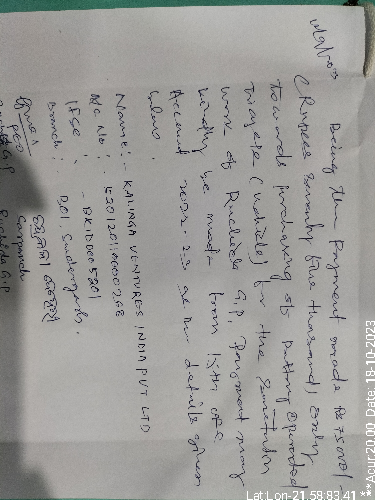 Being the Payment made Rs 75000/-
(Rupees Seventy five thousand) Only
towards purchasing of battery Operated
tricycle (vehicle) for the Sanitation
work of G.P. Payment may
kindly be made from 15th CFC
Account as per details given
below.
Name:- KALINGA VENTURES INDIA PVT LTD
A/c No :
IFSC : - BKID0005201
Branch : BOI, Sundergarh.
PEO Sarpanch
G.P
Lat:Lon-21.58:83.41 ***Acur:20.00 Date:18-10-2023